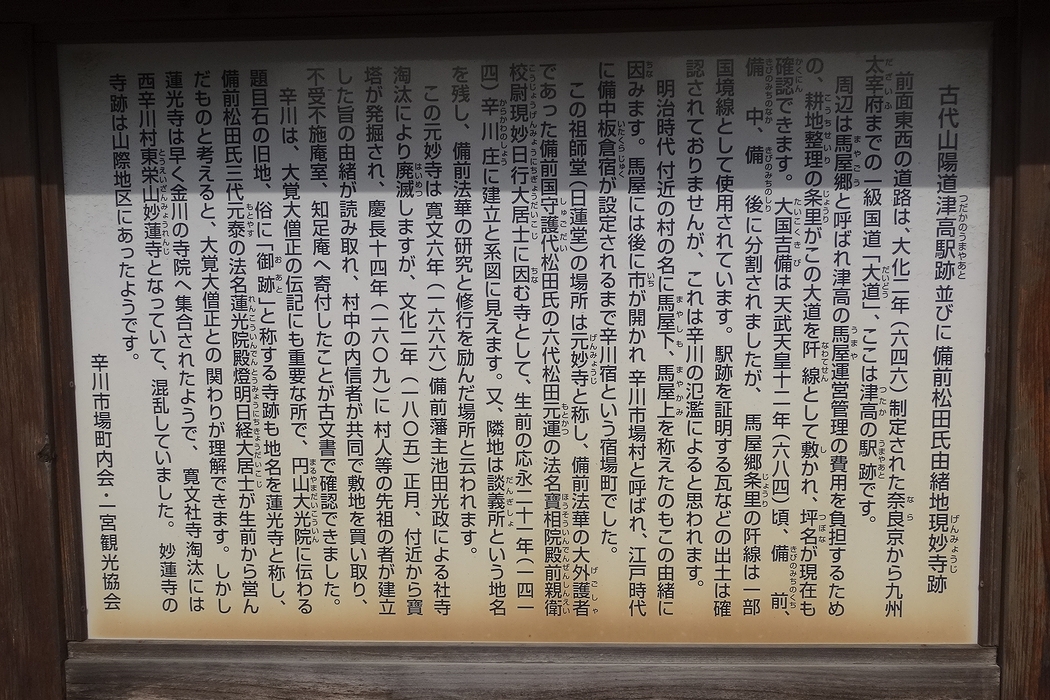 古代山陽道津高駅跡 並びに 備前松田氏由緒地現妙寺跡
前面東西の道路は、大化二年（六四六）制定された奈良京から九州
太宰府までの一級国道「大道」、ここは津高の駅跡です。
周辺は馬屋郷と呼ばれ津高の馬屋運営管理の費用を負担するため
の、耕地整理の条里がこの大道を阡線として敷かれ、坪名が現在も
確認できます。大国吉備は天武天皇十二年（六八四）頃、備前、
備中、備後に分割されましたが、馬屋郷条里の阡線は一部
国境線として使用されています。駅跡を証明する瓦などの出土は確
認されておりませんが、これは辛川の氾濫によると思われます。
明治時代 付近の村の名に馬屋下、馬屋上を称えたのもこの由緒に
因みます。馬屋には後に市が開かれ 辛川市場村と呼ばれ、江戸時代
に備中板倉宿が設定されるまで辛川宿という宿場町でした。
この祖師堂（日蓮堂）の場所は元妙寺と称し、備前法華の大外護者
であった備前国守護代松田氏の六代松田元運の法名寶相院殿前親衛
校尉現妙日行大居士に因む寺として、生前の応永二十一年（一四一
四）辛川庄に建立と系図に見えます。又、隣地は談義所という地名
を残し、備前法華の研究と修行を励んだ場所と云われます。
この元妙寺は寛文六年（一六六六）備前藩主池田光政による社寺
淘汰により廃滅しますが、文化二年（一八〇五）正月、付近から寶
塔が発掘され、慶長十四年（一六〇九）に村人等の先祖の者が建立
した旨の由緒が読み取れ、村中の内信者が共同で敷地を買い取り、
不受不施庵室、知足庵へ寄付したことが古文書で確認できました。
辛川は、大覚大僧正の伝記にも重要な所で、円山大光院に伝わる
題目石の旧地、俗に「御跡」と称する寺跡も地名を蓮光寺と称し、
備前松田氏三代元泰の法名蓮光院殿燈明日経大居士が生前から営ん
だものと考えると、大覚大僧正との関わりが理解できます。しかし
蓮光寺は早く金川の寺院へ集合されたようで、寛文社寺淘汰には
西辛川村東栄山妙蓮寺となっていて、混乱していました。妙蓮寺の
寺跡は山際地区にあったようです。
辛川市場町内会・一宮観光協会